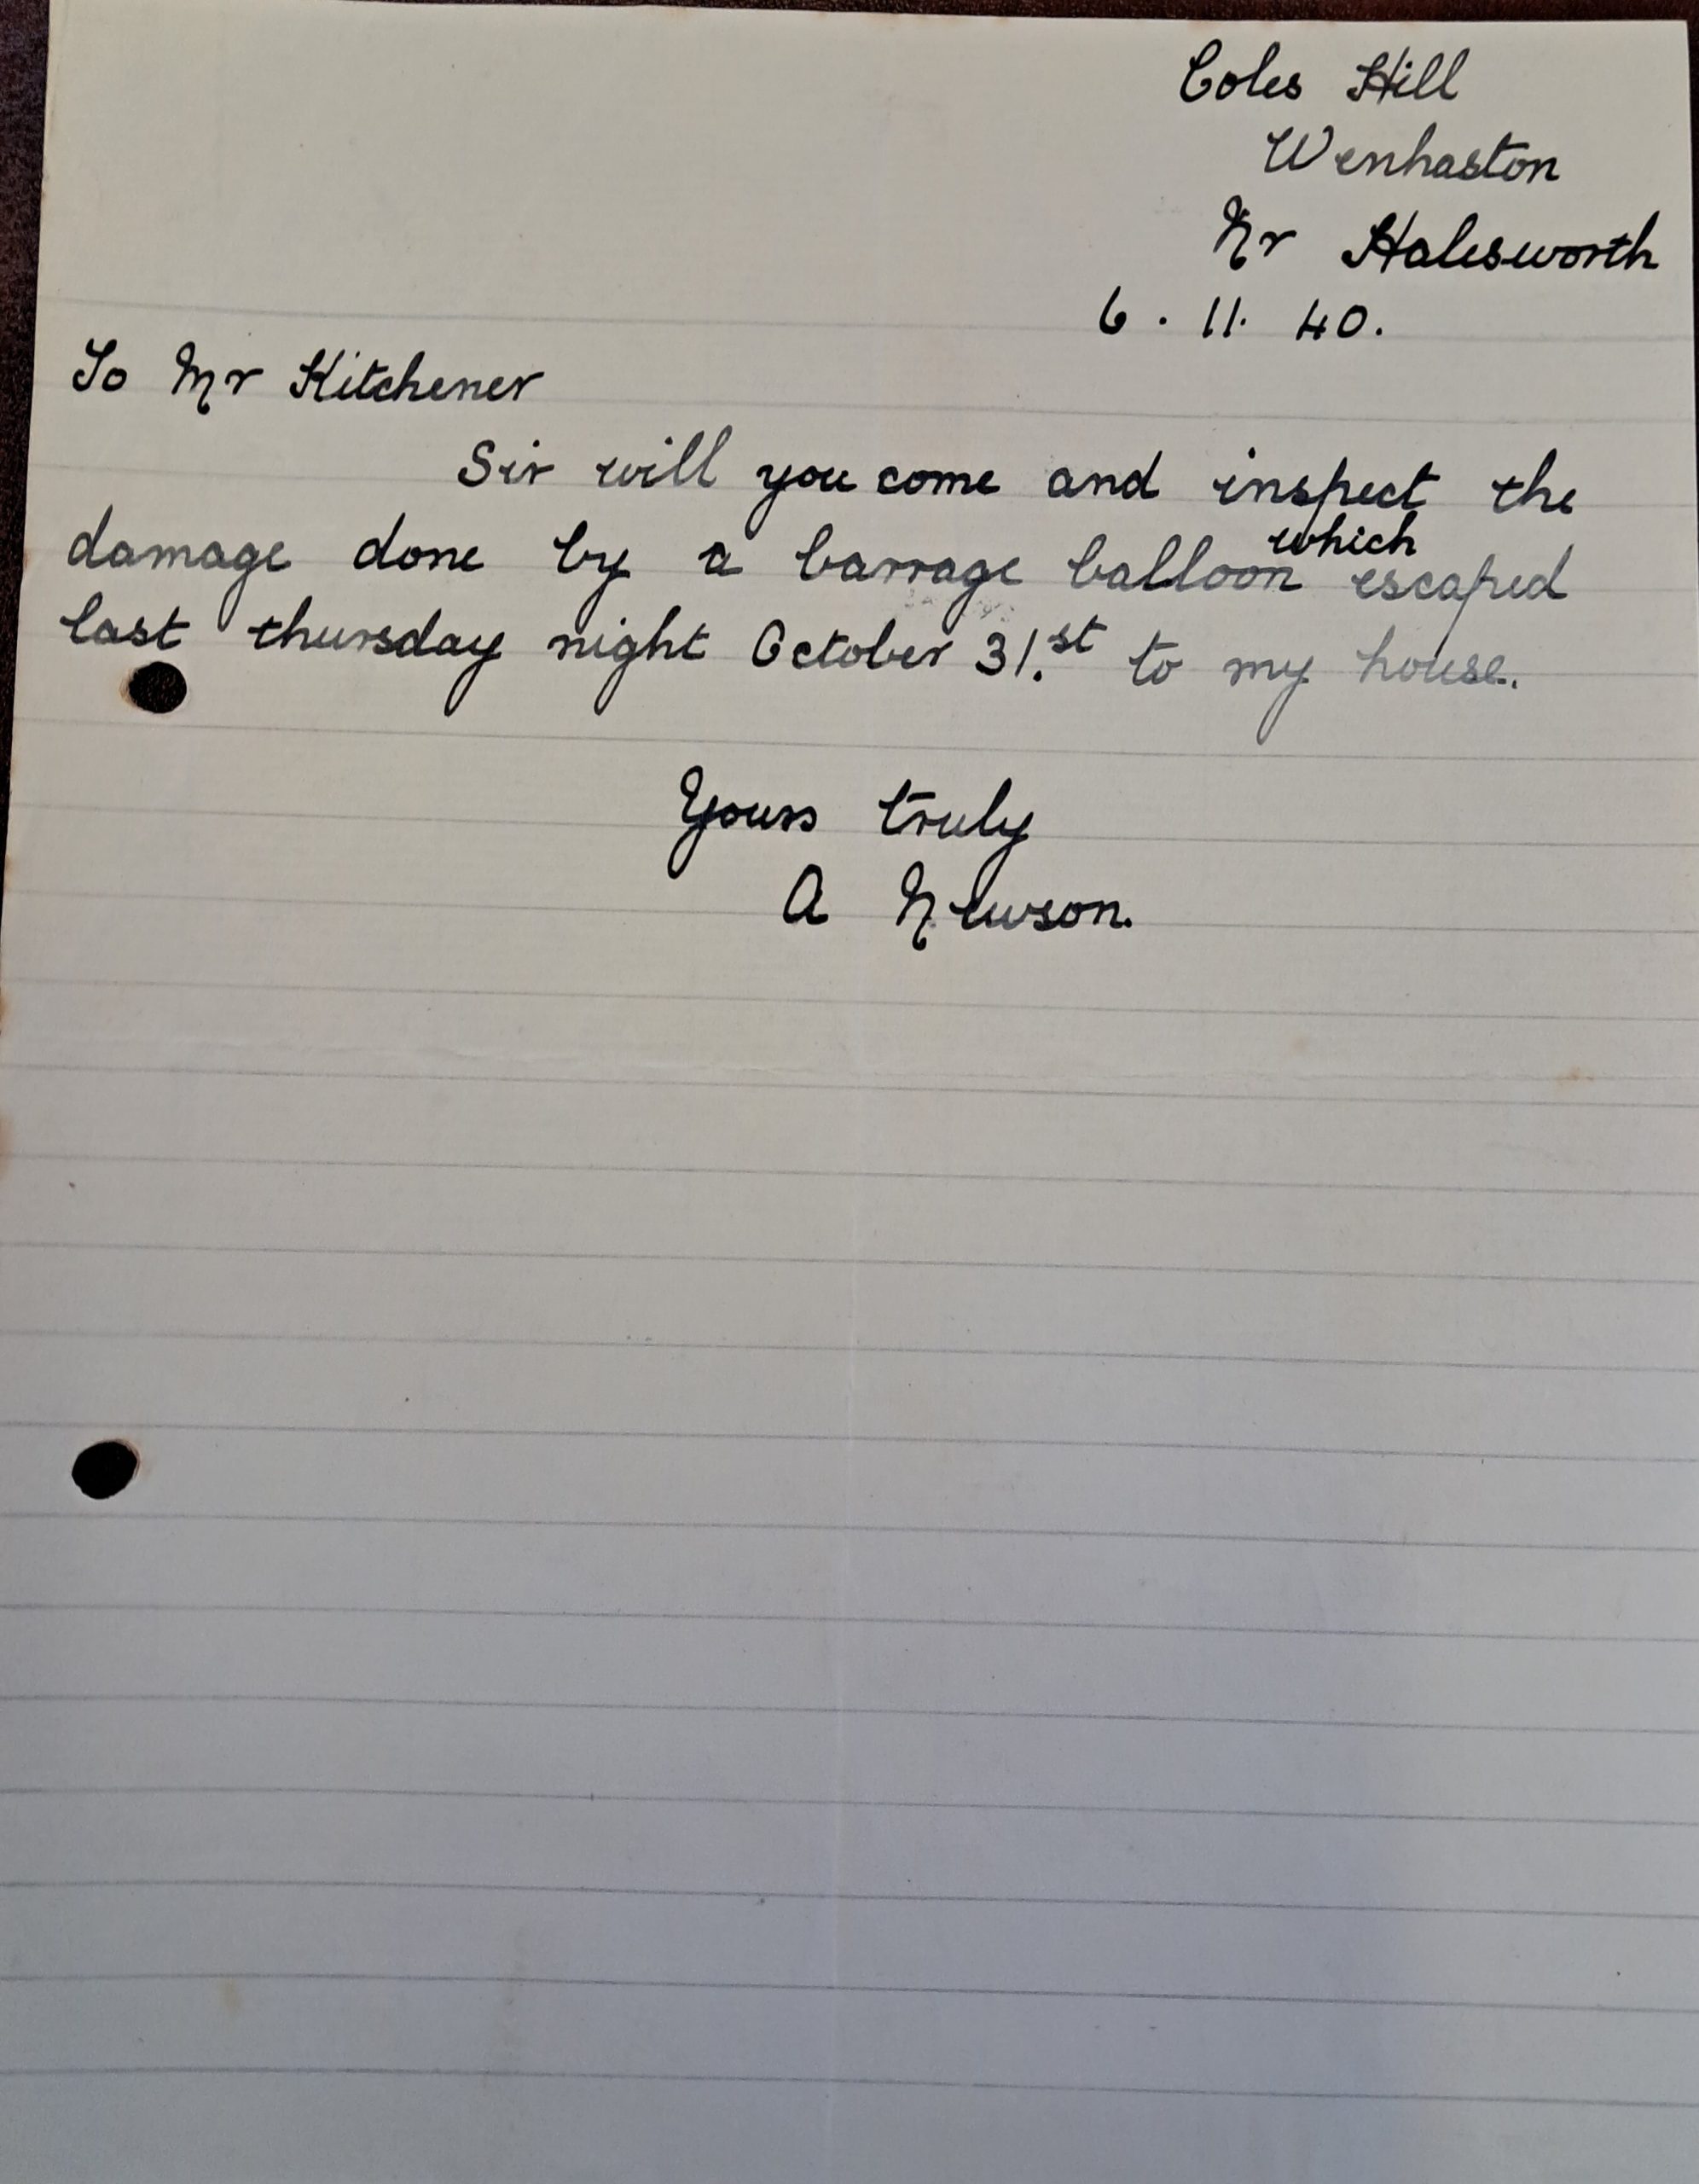 Coles Hill
Wenhaston
Nr Halesworth
6. 11. 40.
To Mr Kitchener
Sir will you come and inspect the
damage done by a barrage balloon which escaped
last thursday night October 31.st to my house.
Yours truly
A Newson.